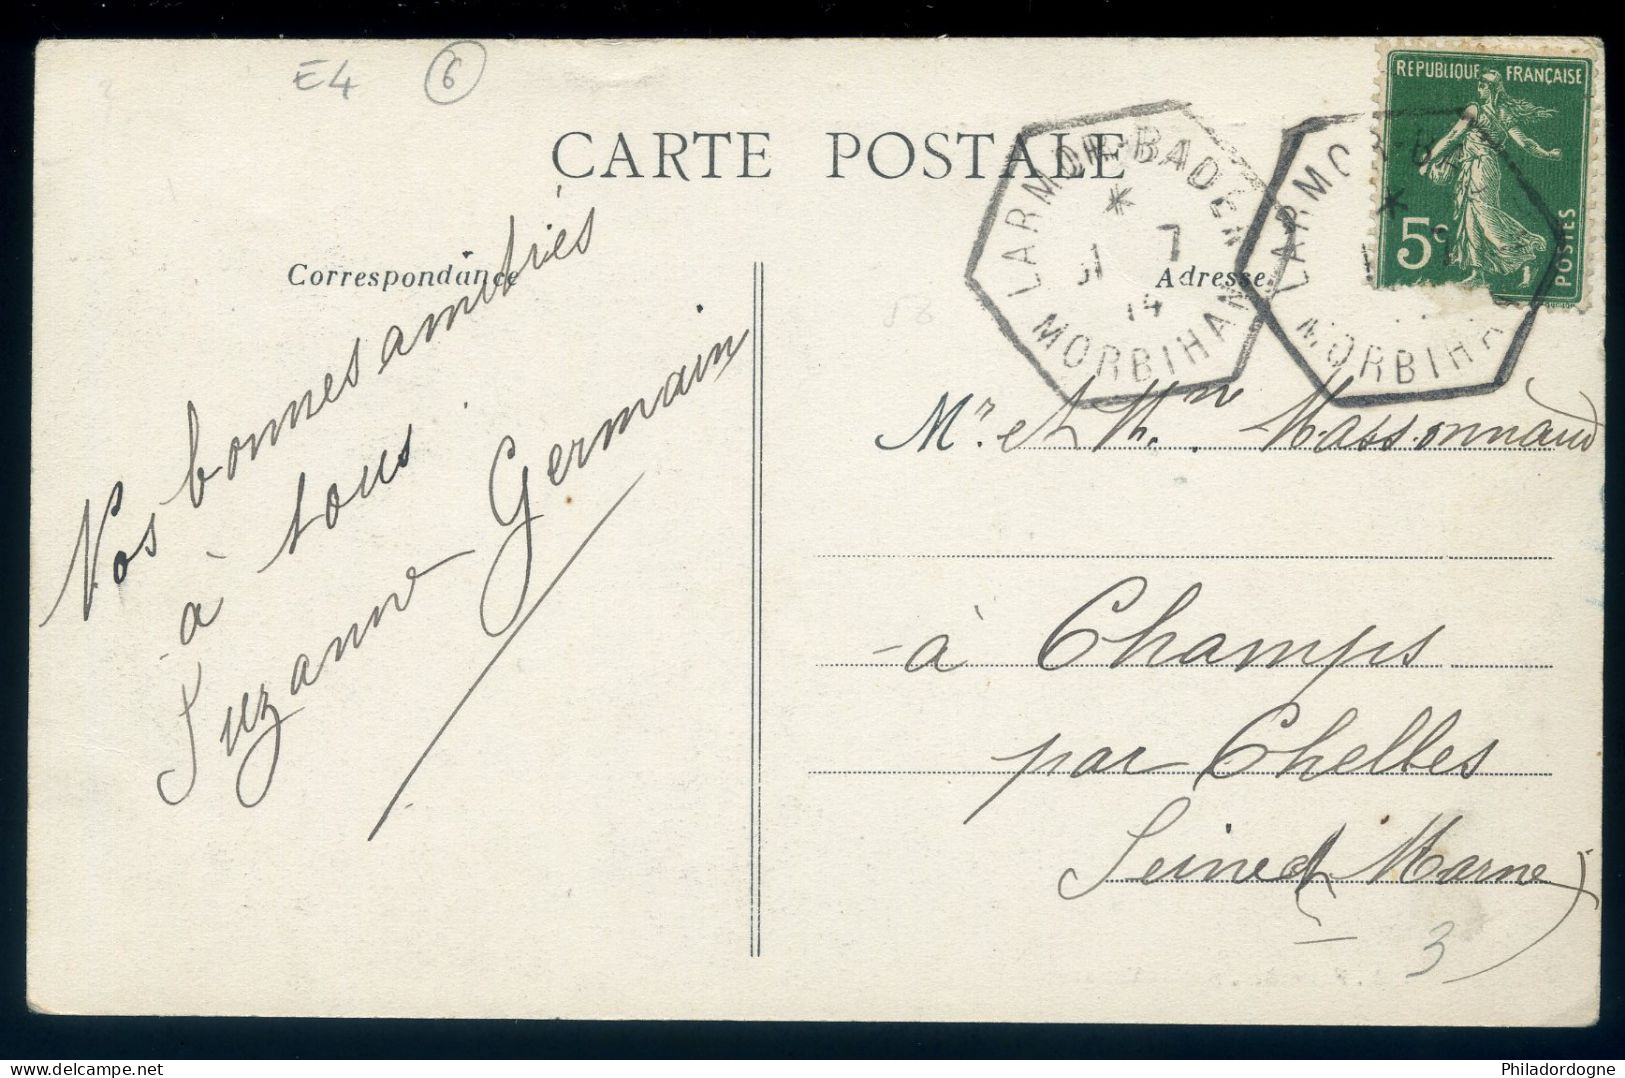 E4 6
CARTE POSTALE
RÉPUBLIQUE FRANÇAISE
5c
POSTES
LARMOR-BADEN
*
31 7
14
MORBIHAN
LARMOR-BA
*
MORBIHA
Correspondance
Adresse
Nos bonnes amitiés
à tous
Suzanne Germain
Mr et Mme Massonnaud
à Champs
par Chelles
Seine et Marne
3
Philadordogne